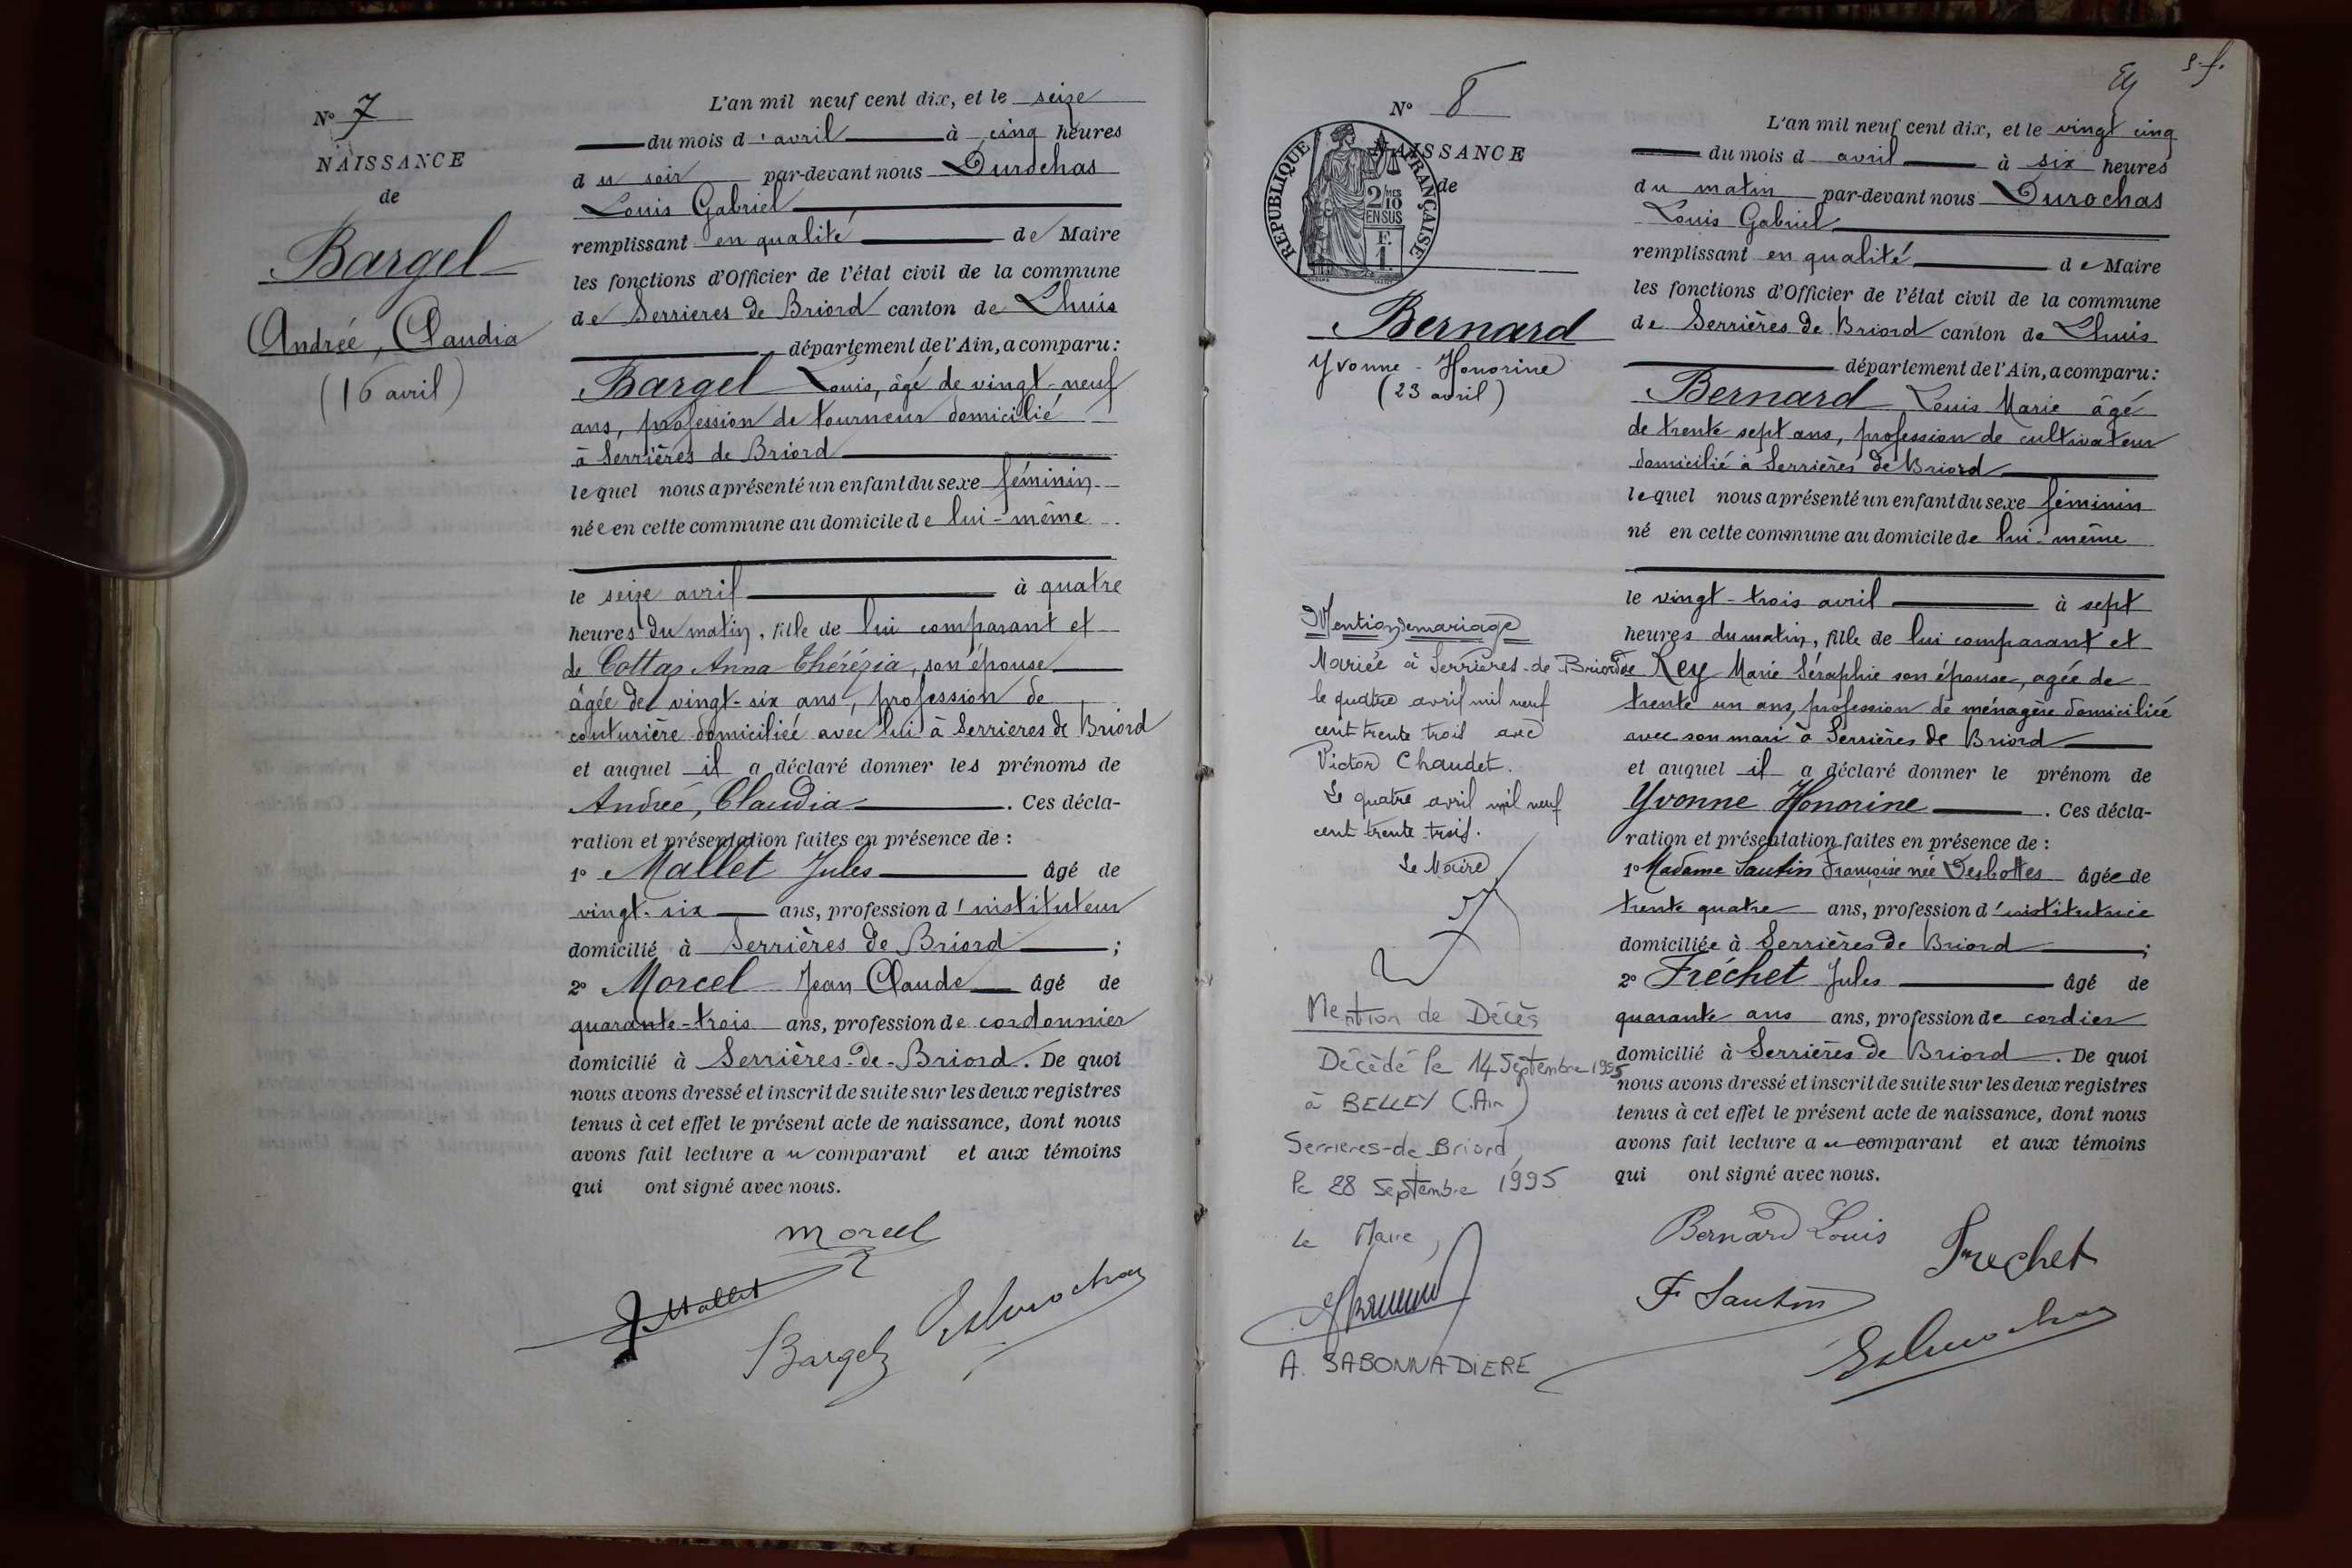 N° 7
NAISSANCE
de
Bargel
Andrée, Claudia
(16 avril)
L'an mil neuf cent dix, et le seize
du mois d'avril à cinq heures
du soir par-devant nous Durochas
Louis Gabriel
remplissant en qualité de Maire
les fonctions d'Officier de l'état civil de la commune
de Serrieres de Briord canton de Lhuis
département de l'Ain, a comparu :
Bargel Louis, âgé de vingt-neuf
ans, profession de tourneur domicilié
à Serrières de Briord
lequel nous a présenté un enfant du sexe féminin
née en cette commune au domicile de lui-même
le seize avril à quatre
heures du matin, fille de lui comparant et
de Cottaz Anna Thérézia, son épouse
âgée de vingt-six ans, profession de
couturière domiciliée avec lui à Serrieres de Briord
et auquel il a déclaré donner les prénoms de
Andrée, Claudia. Ces décla-
ration et présentation faites en présence de :
1° Mallet Jules âgé de
vingt-six ans, profession d'instituteur
domicilié à Serrières de Briord ;
2° Morcel Jean Claude âgé de
quarante-trois ans, profession de cordonnier
domicilié à Serrières-de-Briord. De quoi
nous avons dressé et inscrit de suite sur les deux registres
tenus à cet effet le présent acte de naissance, dont nous
avons fait lecture au comparant et aux témoins
qui ont signé avec nous.
Morcel
J Mallet
Bargel
N° 8
NAISSANCE
de
RÉPUBLIQUE FRANÇAISE
2/10 MES
EN SUS
F.
1.
Bernard
Yvonne - Honorine
(23 avril)
Mention de mariage
Mariée à Serrières-de-Briord
le quatre avril mil neuf
cent trente trois avec
Victor Chaudet.
Le quatre avril mil neuf
cent trente trois.
Le Maire
Mention de Décès
Décédé le 14 Septembre 1995
à BELLEY (Ain)
Serrieres-de-Briord,
le 28 Septembre 1995
Le Maire,
A. SABONNADIERE
L'an mil neuf cent dix, et le vingt cinq
du mois d avril à six heures
du matin par-devant nous Durochas
Louis Gabriel
remplissant en qualité de Maire
les fonctions d'Officier de l'état civil de la commune
de Serrières de Briord canton de Lhuis
département de l'Ain, a comparu :
Bernard Louis Marie âgé
de trente sept ans, profession de cultivateur
domicilié à Serrières de Briord
lequel nous a présenté un enfant du sexe féminin
né en cette commune au domicile de lui-même
le vingt-trois avril à sept
heures du matin, fille de lui comparant et
de Rey Marie Séraphie son épouse, agée de
trente un ans, profession de ménagère domiciliée
avec son mari à Serrières de Briord
et auquel il a déclaré donner le prénom de
Yvonne Honorine. Ces décla-
ration et présentation faites en présence de :
1° Madame Sautin Françoise née Desbottes âgée de
trente quatre ans, profession d'institutrice
domiciliée à Serrières de Briord ;
2° Fréchet Jules âgé de
quarante ans ans, profession de cordier
domicilié à Serrières de Briord. De quoi
nous avons dressé et inscrit de suite sur les deux registres
tenus à cet effet le présent acte de naissance, dont nous
avons fait lecture au comparant et aux témoins
qui ont signé avec nous.
Bernard Louis
Frechet
F Sautin